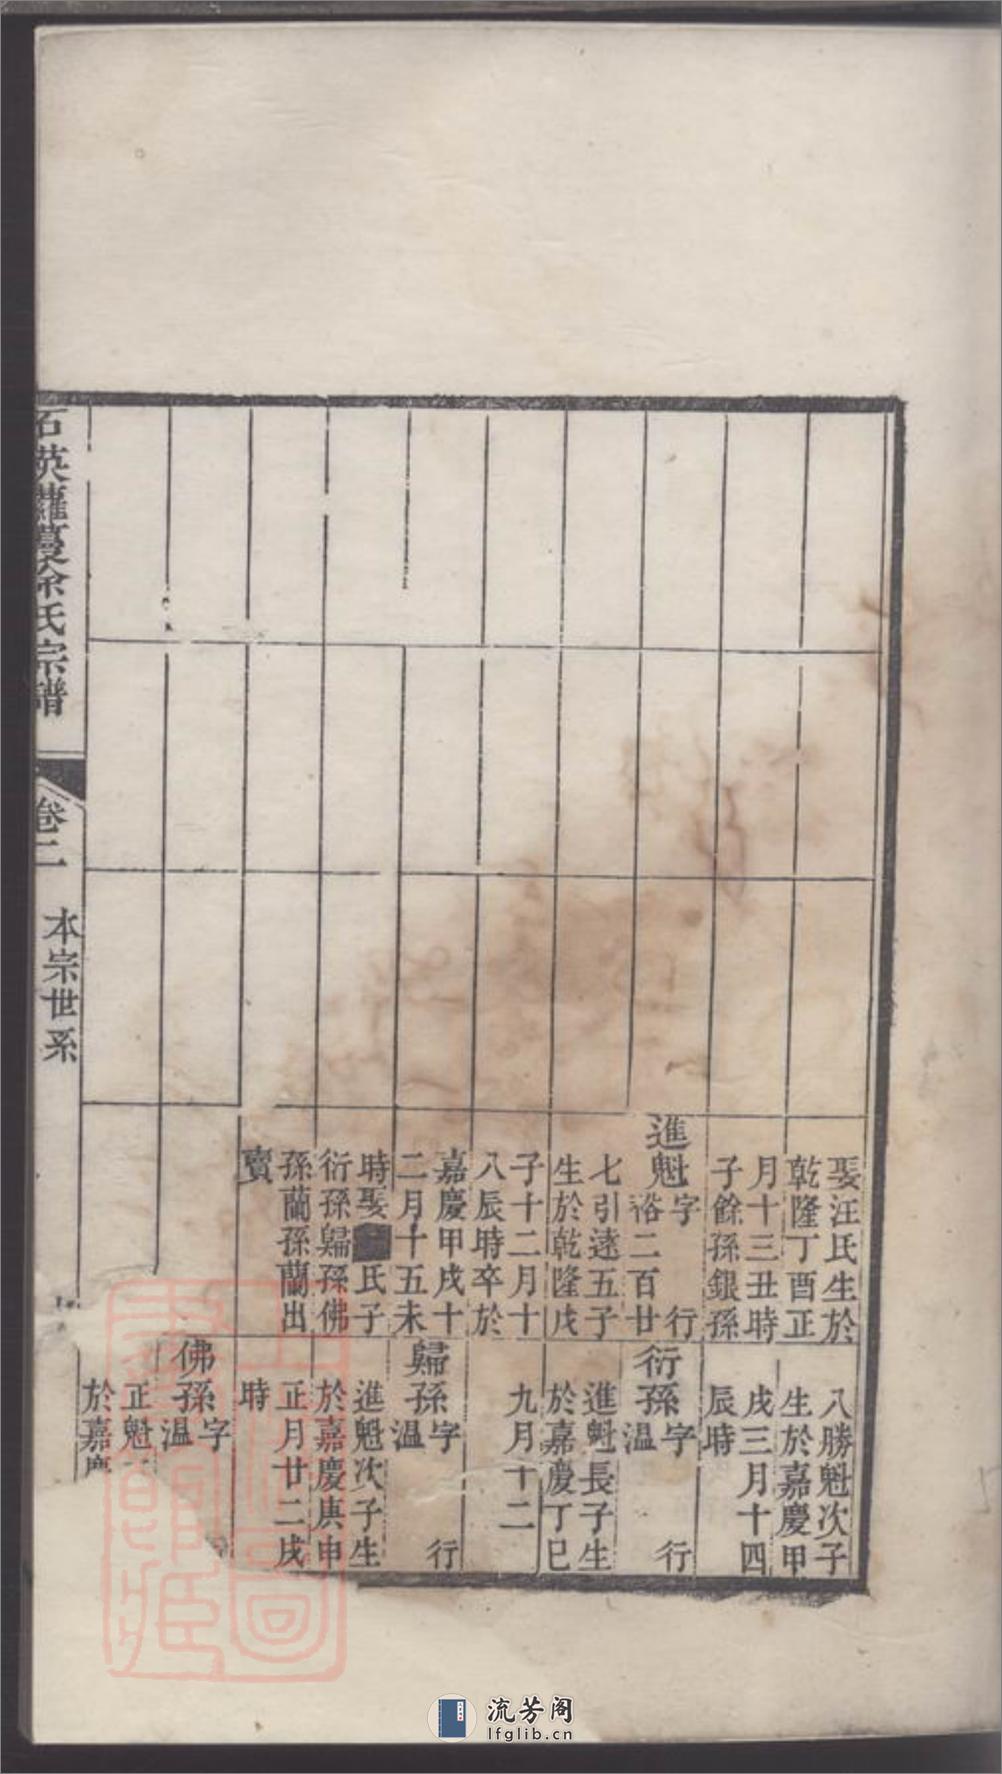 娶汪氏生於
乾隆丁酉正
月十三丑時
子餘孫銀孫
進魁字 行
裕二百廿
七引遠五子
生於乾隆戊
子十二月十
八辰時卒於
嘉慶甲戌十
二月十五未
時娶 氏子
衍孫歸孫佛
孫蘭孫蘭出
賣
八勝魁次子
生於嘉慶甲
戌三月十四
辰時
衍孫字 行
溫
進魁長子生
於嘉慶丁巳
九月十二
歸孫字 行
溫
進魁次子生
於嘉慶庚申
正月廿二戌
時
佛孫字
溫
正魁
於嘉慶
石英蘿蔓徐氏宗譜
卷二 本宗世系
流芳阁
lfglib.cn